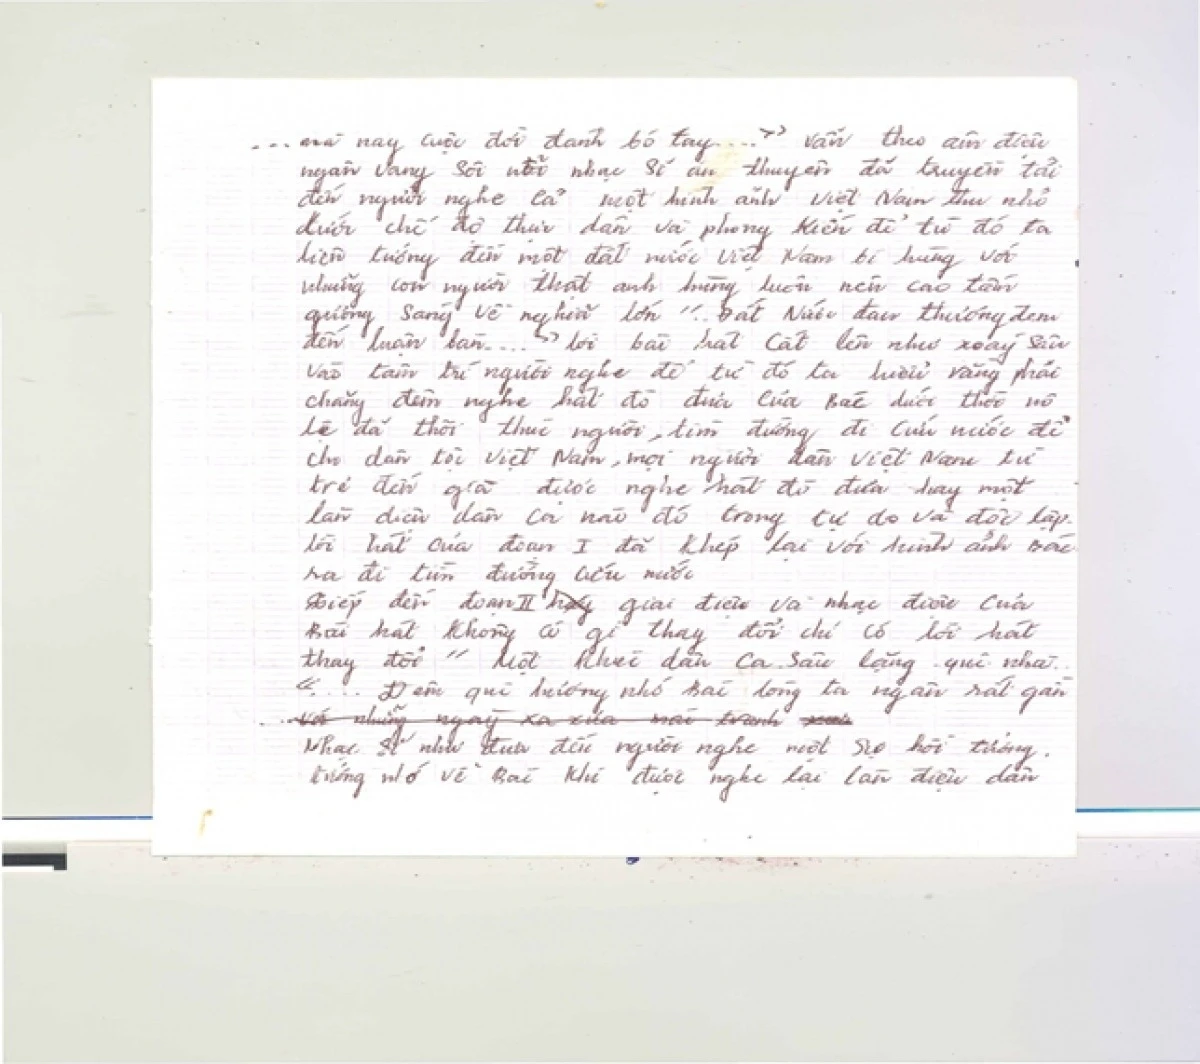 ... mà nay cuộc đời đành bó tay....'' vẫn theo âm điệu
ngân vang sôi nổi nhạc sĩ an thuyên đã truyền tải
đến người nghe cả một hình ảnh Việt Nam thu nhỏ
dưới chế độ thực dân và phong kiến để từ đó ta
liên tưởng đến một đất nước Việt Nam bi hùng với
những con người thật anh hùng luôn nên cao tấm
gương sáng về nghĩa lớn "..Đất Nước đau thương đem
đến luận bàn....'' lời bài hát cất lên như xoáy sâu
vào tâm trí người nghe để từ đó ta hiểu rằng phải
chăng đêm nghe hát đò đưa của Bác dưới thời nô
lệ đã thôi thúc người, tìm đường đi cứu nước để
cho dân tộc Việt Nam, mọi người dân Việt Nam từ
trẻ đến già được nghe hát đò đưa hay một
làn điệu dân ca nào đó trong tự do và độc lập.
lời hát của đoạn I đã khép lại với hình ảnh Bác
ra đi tìm đường cứu nước
Tiếp đến đoạn II giai điệu và nhạc điệu của
Bài hát không có gì thay đổi chỉ có lời hát
thay đổi " Một khúc dân ca sâu lặng quê nhà..
".... Đêm quê hương nhớ Bác lòng ta ngân rất gần
... với những ngày xa xưa mái tranh
Nhạc sĩ như đưa đến người nghe một sự hồi tưởng.
tưởng nhớ về Bác khi được nghe lại làn điệu dân